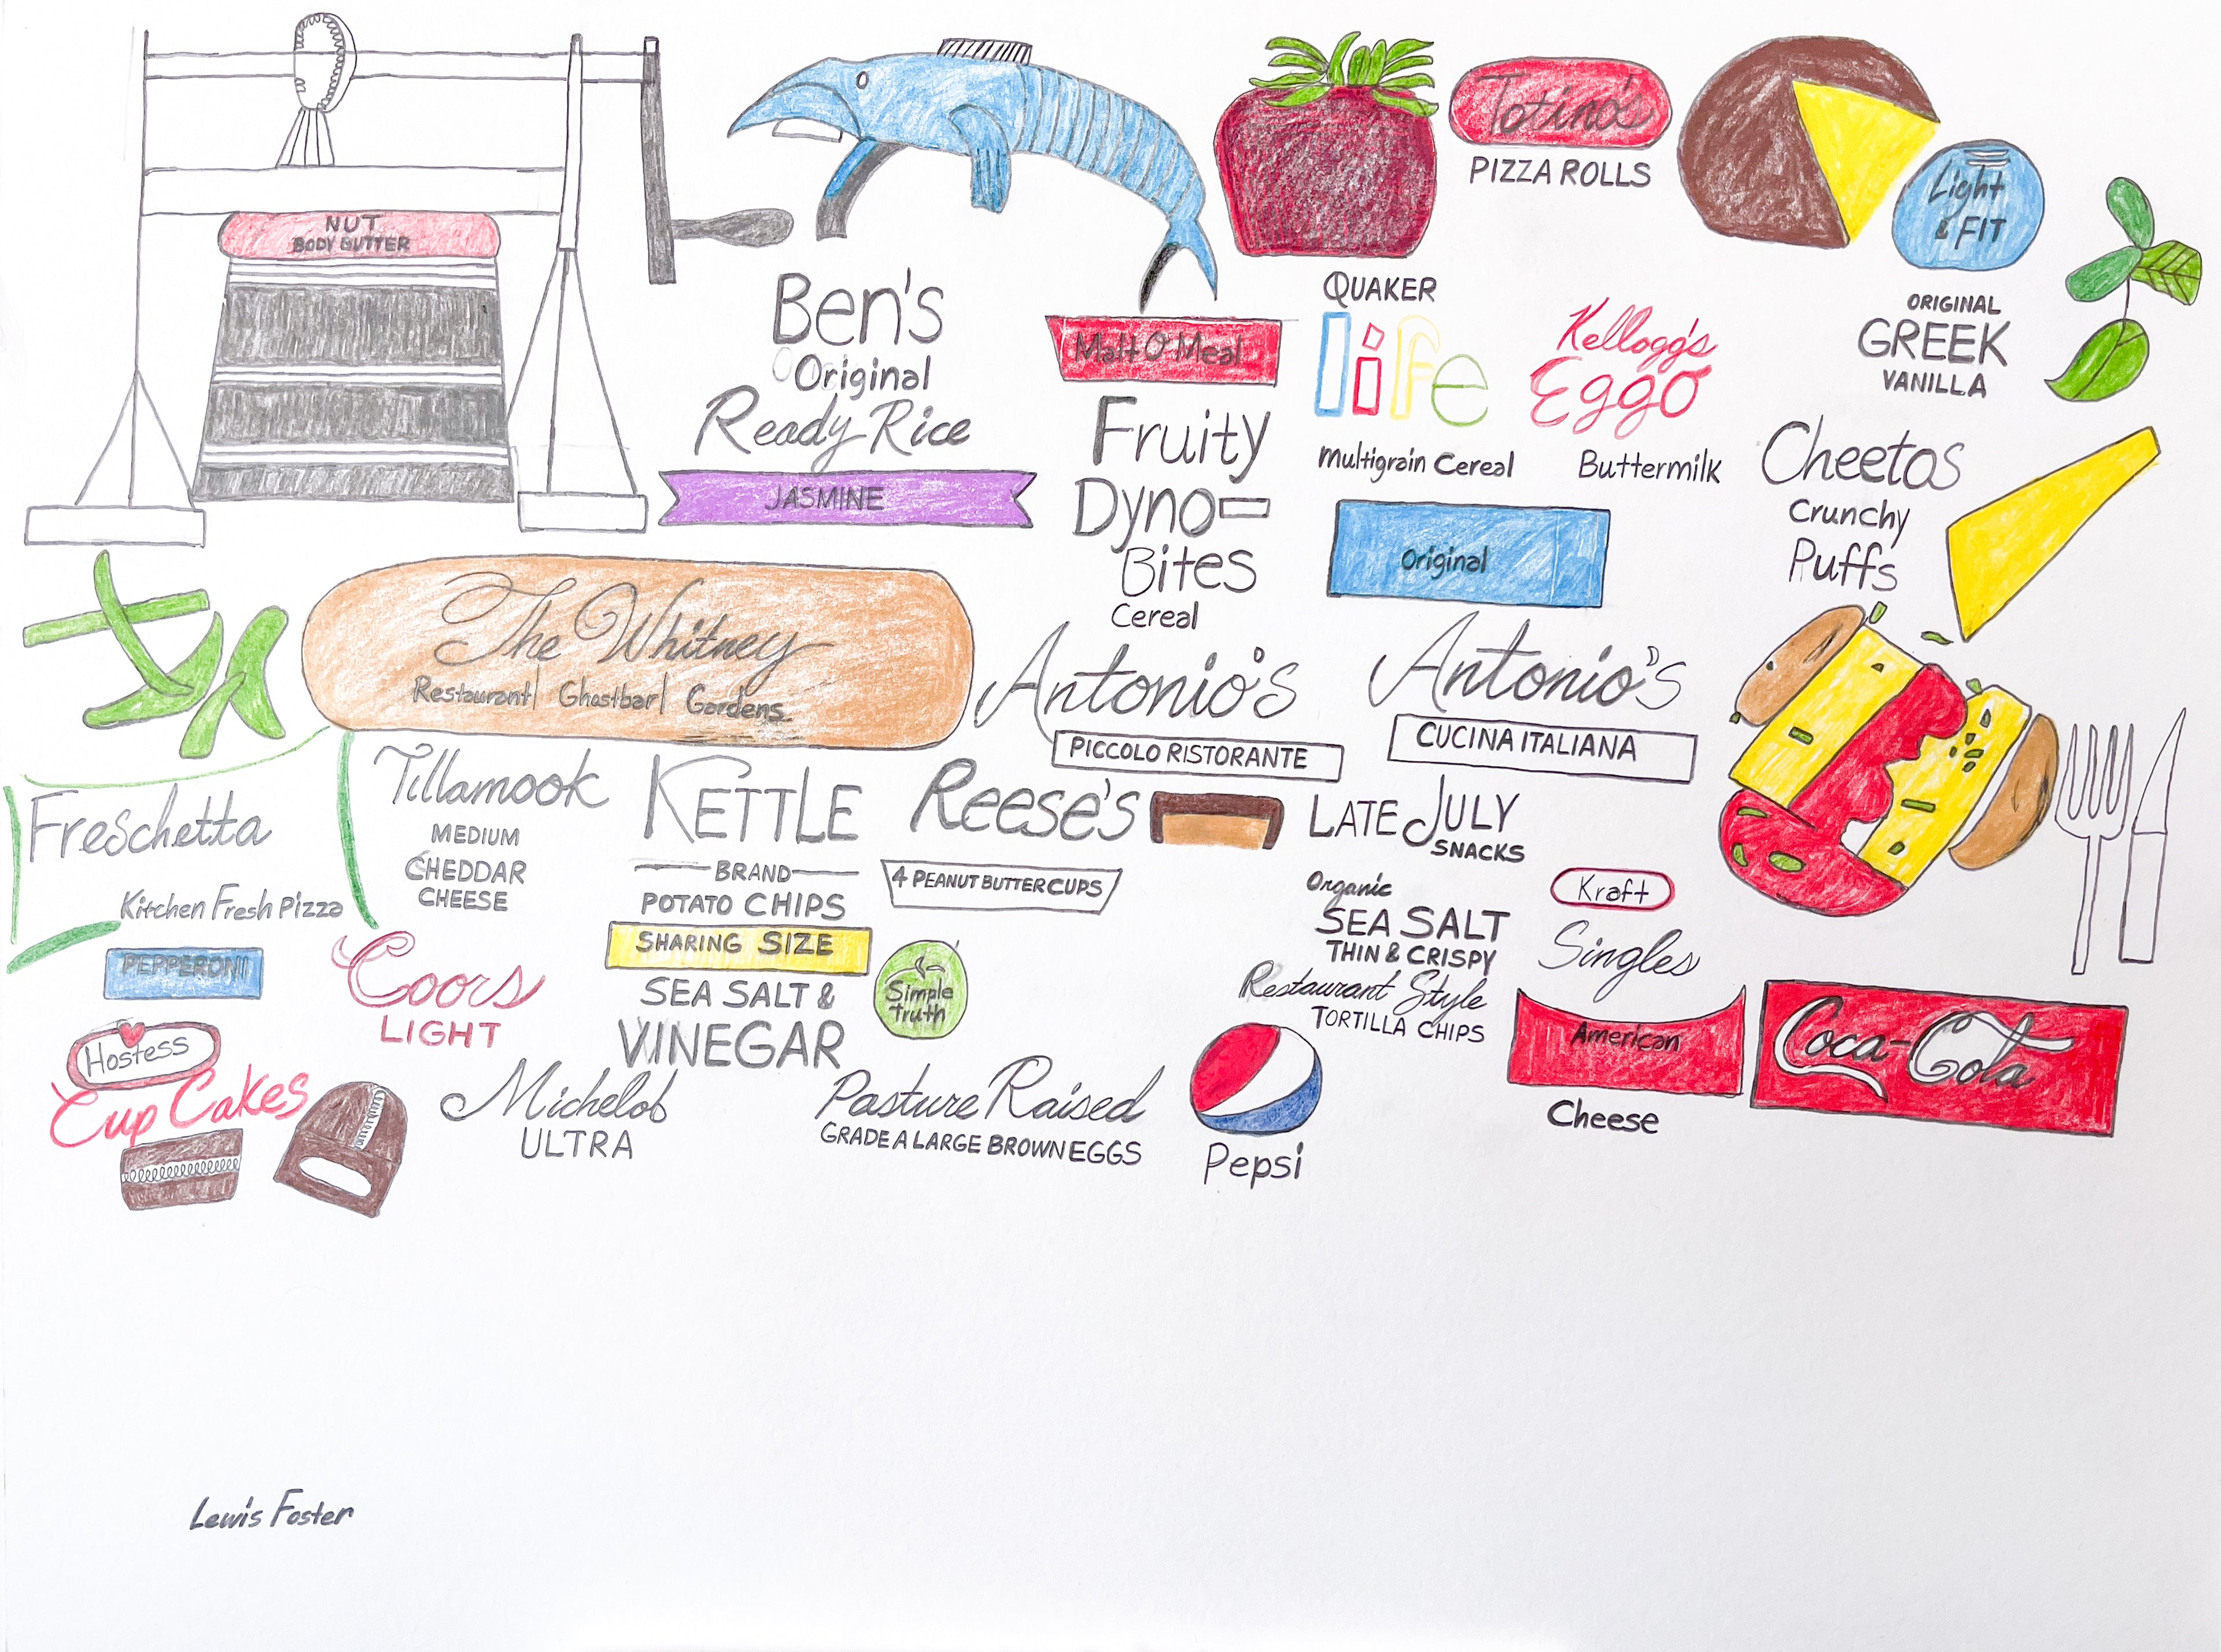 NUT
BODY BUTTER
Ben's
Original
Ready Rice
JASMINE
Malt O Meal
Fruity
Dyno-
Bites
Cereal
QUAKER
life
multigrain Cereal
Original
Totino's
PIZZA ROLLS
Kellogg's
Eggo
Buttermilk
Light
& FIT
ORIGINAL
GREEK
VANILLA
Cheetos
Crunchy
Puffs
The Whitney
Restaurant| Ghostbar| Gardens
Antonio's
PICCOLO RISTORANTE
Antonio's
CUCINA ITALIANA
Freschetta
Kitchen Fresh Pizza
PEPPERONI
Tillamook
MEDIUM
CHEDDAR
CHEESE
KETTLE
BRAND
POTATO CHIPS
SHARING SIZE
SEA SALT &
VINEGAR
Reese's
4 PEANUT BUTTER CUPS
LATE JULY
SNACKS
Organic
SEA SALT
THIN & CRISPY
Restaurant Style
TORTILLA CHIPS
Kraft
Singles
American
Cheese
Coors
LIGHT
Simple
truth
Pasture Raised
GRADE A LARGE BROWN EGGS
Hostess
Cup Cakes
Michelob
ULTRA
Pepsi
Coca-Cola
Lewis Foster